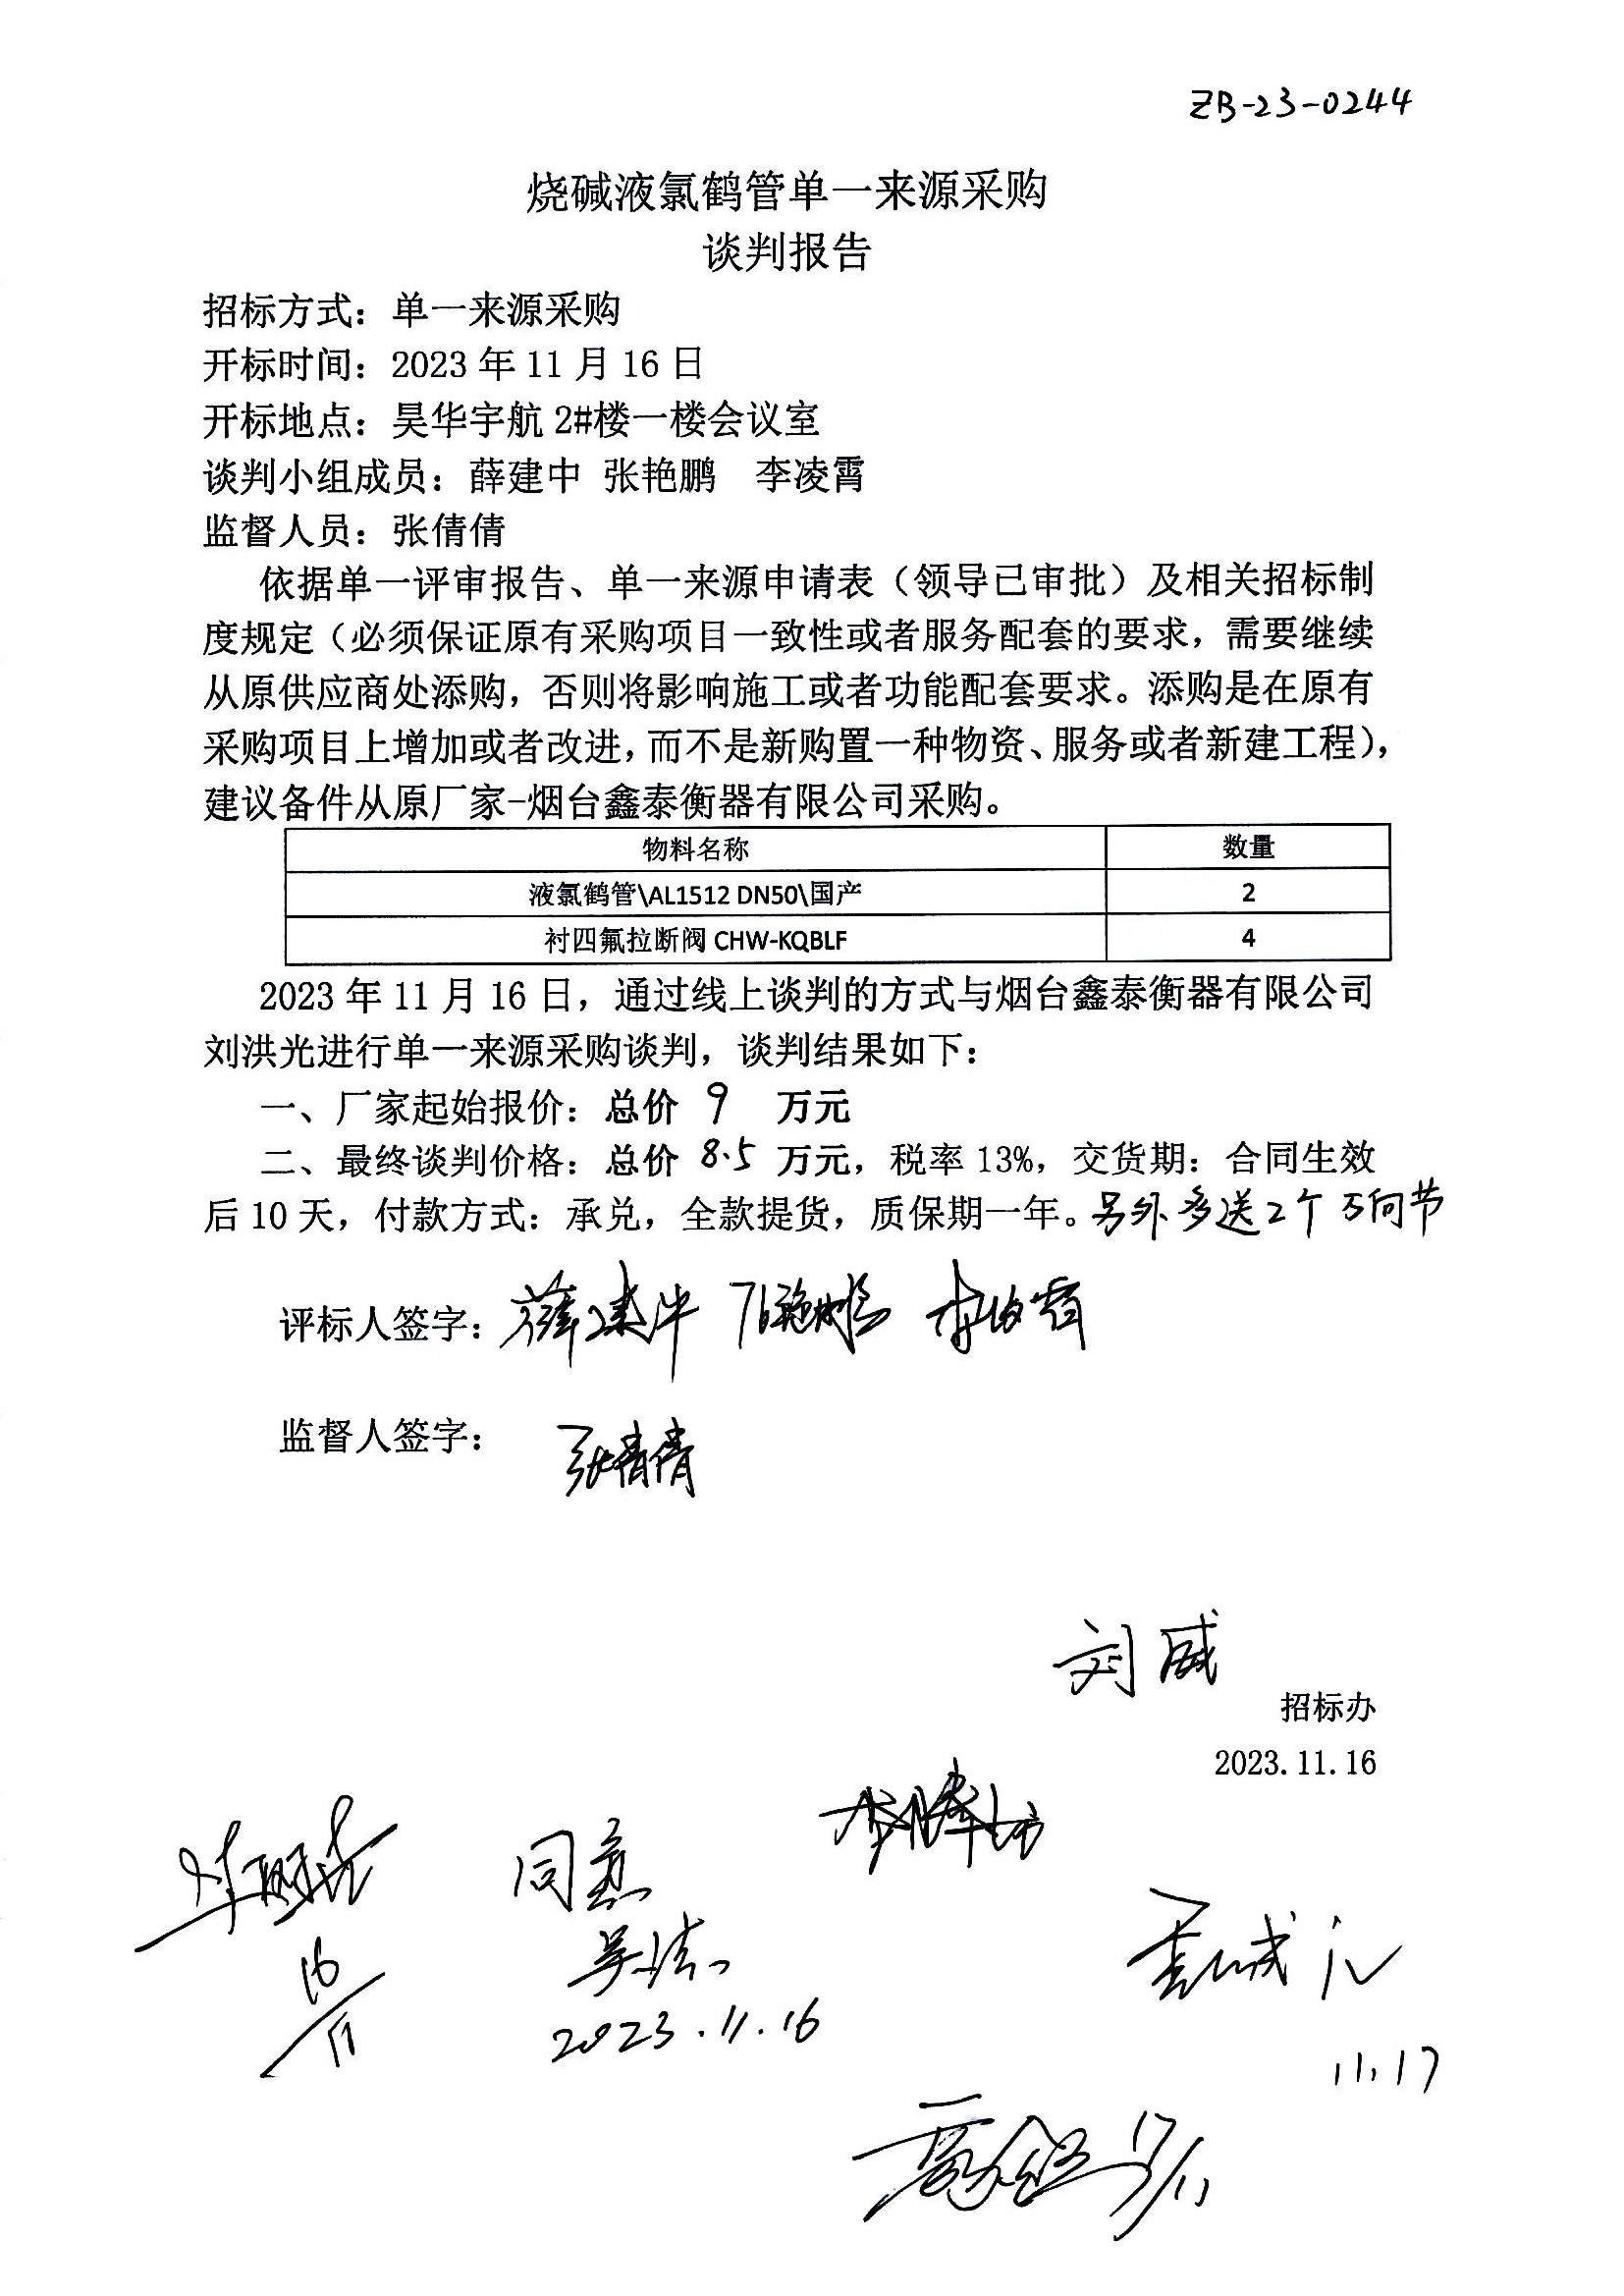 ZB-23-0244
烧碱液氯鹤管单一来源采购
谈判报告
招标方式：单一来源采购
开标时间：2023 年 11 月 16 日
开标地点：昊华宇航 2#楼一楼会议室
谈判小组成员：薛建中 张艳鹏 李凌霄
监督人员：张倩倩
依据单一评审报告、单一来源申请表（领导已审批）及相关招标制
度规定（必须保证原有采购项目一致性或者服务配套的要求，需要继续
从原供应商处添购，否则将影响施工或者功能配套要求。添购是在原有
采购项目上增加或者改进，而不是新购置一种物资、服务或者新建工程），
建议备件从原厂家-烟台鑫泰衡器有限公司采购。
物料名称 数量
液氯鹤管\AL1512 DN50\国产 2
衬四氟拉断阀 CHW-KQBLF 4
2023 年 11 月 16 日，通过线上谈判的方式与烟台鑫泰衡器有限公司
刘洪光进行单一来源采购谈判，谈判结果如下：
一、厂家起始报价：总价 9 万元
二、最终谈判价格：总价 8.5 万元，税率 13%，交货期：合同生效
后 10 天，付款方式：承兑，全款提货，质保期一年。另外多送2个万向节
评标人签字：薛建中 张艳鹏 李凌霄
监督人签字：张倩倩
刘威
招标办
2023.11.16
同意
16/11
2023.11.16
11.17
17/11